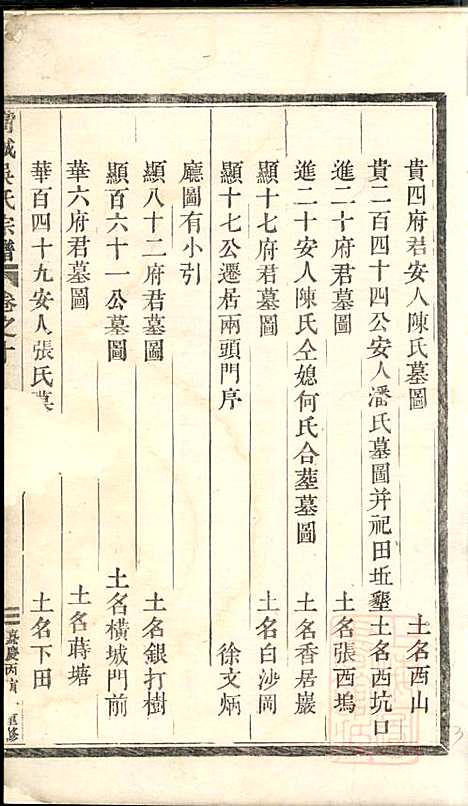 貴四府君安人陳氏墓圖 土名西山
貴二百四十四公安人潘氏墓圖并祀田坵壟 土名西坑口
進二十府君墓圖 土名張西塢
進二十安人陳氏仝媳何氏合塟墓圖 土名香居巖
顯十七府君墓圖 土名白沙岡
顯十七公遷居兩頭門序 徐文炳
廳圖有小引
顯八十二府君墓圖 土名銀打樹
顯百六十一公墓圖 土名橫城門前
華六府君墓圖 土名蒔塘
華百四十九安人張氏墓 土名下田
吳氏宗譜 卷之十 嘉慶丙寅 重修